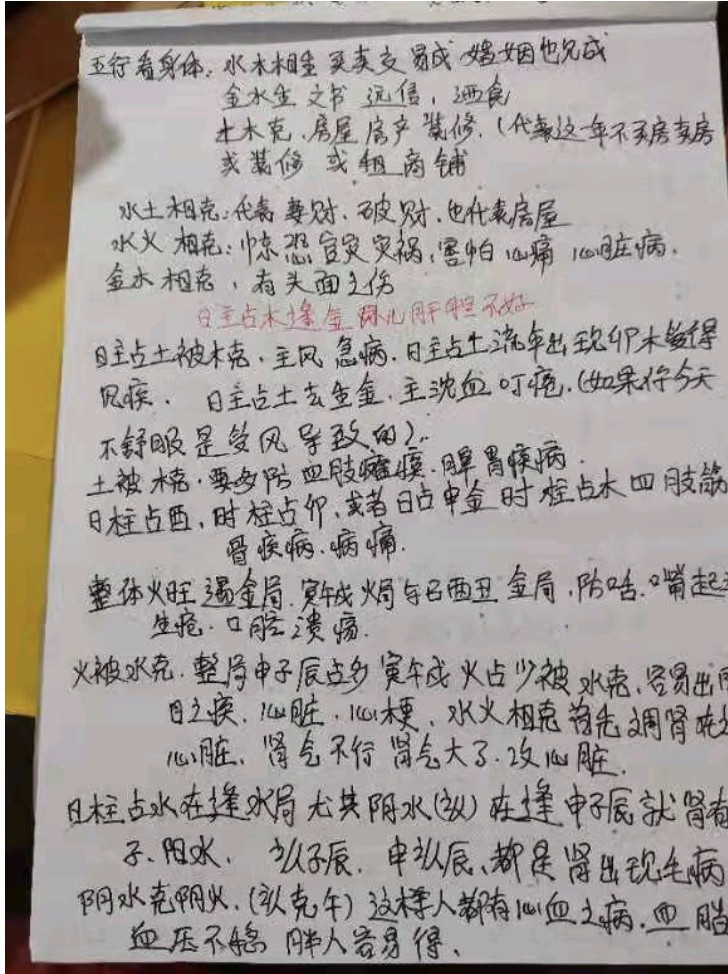 五行看身体：水木相生 买卖交易成 婚姻也兄成
金水生 文书 远信，酒食
土木克．房屋 房产 装修．(代表这一年不买房卖房
或装修 或租商铺
水土相克：代表妻财．破财．也代表房屋
水火相克：惊恐 官灾 灾祸，害怕 心痛 心脏病．
金木相克，有头面之伤
日主占木逢金 肝胆不好
日主占土被木克．主风 急病．日主占土流年出现卯木多得
风疾． 日主占土去生金．主沈血 疔疮．(如果你今天
不舒服是受风导致的)．
土被木克．要多防 四肢瘫痪．脾胃疾病．
日柱占酉，时柱占卯，或者日占申金 时柱占木 四肢筋
骨疾病．病痛．
整体火旺遇金局．寅午戌火局与巳酉丑金局．防咕．嘴起
生疮．口腔溃疡．
火被水克．整局申子辰占多 寅午戌火占少被水克．容易出
目之疾．心脏．心梗．水火相克首先调肾
心脏．肾气不行 肾气大了．攻心脏．
日柱占水在逢水局 尤其阴水(亥)在逢申子辰就肾有
子．阳水． 亥子辰．申亥辰．都是肾出现毛病
阴水克阴火．(亥克午)这样人都有心血之病．血脂
血压不稳 胖人容易得．